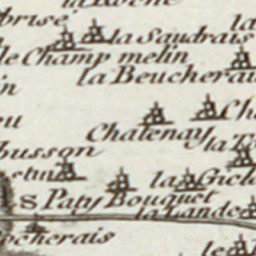 la Roche
brise
la
la Saudrais
le Champ melin
la Beucherai
in
Ch
ou
Chatenay
la
busson
etur
la Gicl
s Paty Bouquet
la Lande
ocherais
le